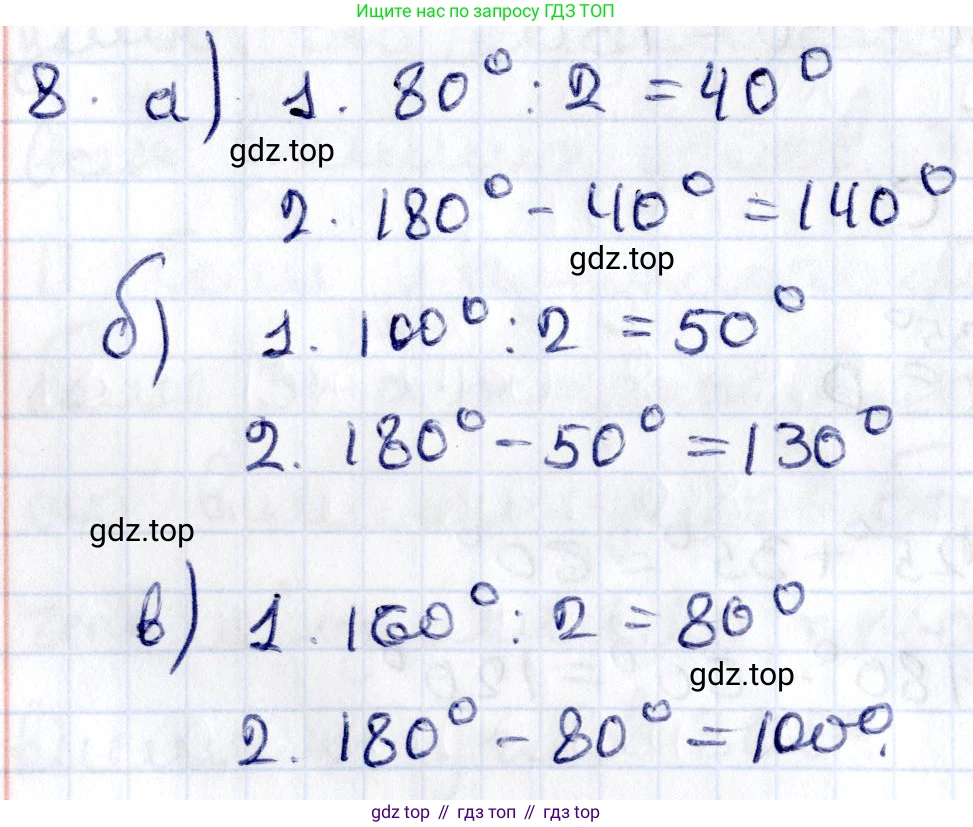 Ищите нас по запросу ГДЗ ТОП
8. а) 1. 80° : 2 = 40°
gdz.top
2. 180° - 40° = 140°
gdz.top
б) 1. 100° : 2 = 50°
2. 180° - 50° = 130°
gdz.top
в) 1. 160° : 2 = 80°
gdz.top
2. 180° - 80° = 100°.
gdz.top // гдз топ // гдз top